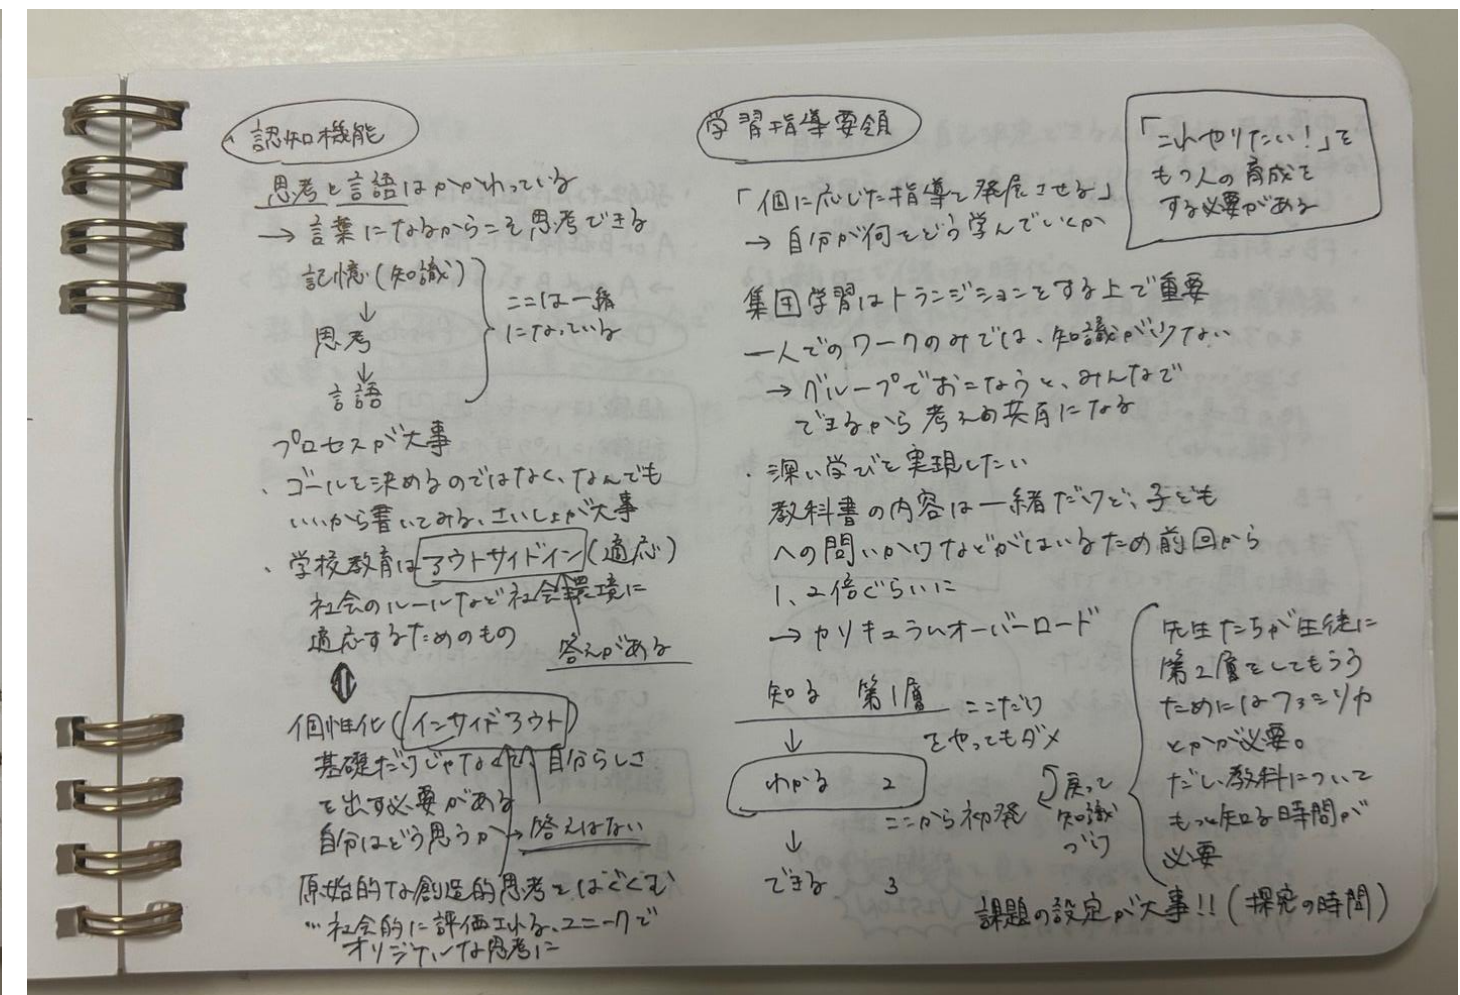 認知機能
思考と言語はかかわっている
→ 言葉になるからこそ思考できる
記憶(知識)
↓
思考
↓
言語
ここは一緒
になっている
プロセスが大事
・ゴールを決めるのではなく、なんでも
いいから書いてみる、さいしょが大事
・学校教育はアウトサイドイン(適応)
社会のルールなど社会環境に
適応するためのもの
答えがある
個性化(インサイドアウト)
基礎だけじゃなくて、自分らしさ
を出す必要がある
自分はどう思うか→答えはない
原始的な創造的思考をはぐくむ
…社会的に評価される、ユニークで
オリジナルな思考に
学習指導要領
「個に応じた指導を発展させる」
→ 自分が何をどう学んでいくか
「これやりたい!」を
もつ人の育成を
する必要がある
集団学習はトランジションをする上で重要
一人でのワークのみでは、知識が少ない
→ グループでおこなうと、みんなで
できるから考えの共有になる
・深い学びを実現したい
教科書の内容は一緒だけど、子ども
への問いかけなどがはいるため前回から
1、2倍ぐらいに
→ カリキュラムオーバーロード
知る 第1層 ここだけ
をやってもダメ
↓
わかる 2
ここから初発
戻って
知識
づけ
↓
できる 3
先生たちが生徒に
第2層をしてもらう
ためにはファシリ力
とかが必要。
だし、教科について
もっと知る時間が
必要
課題の設定が大事!!(探究の時間)